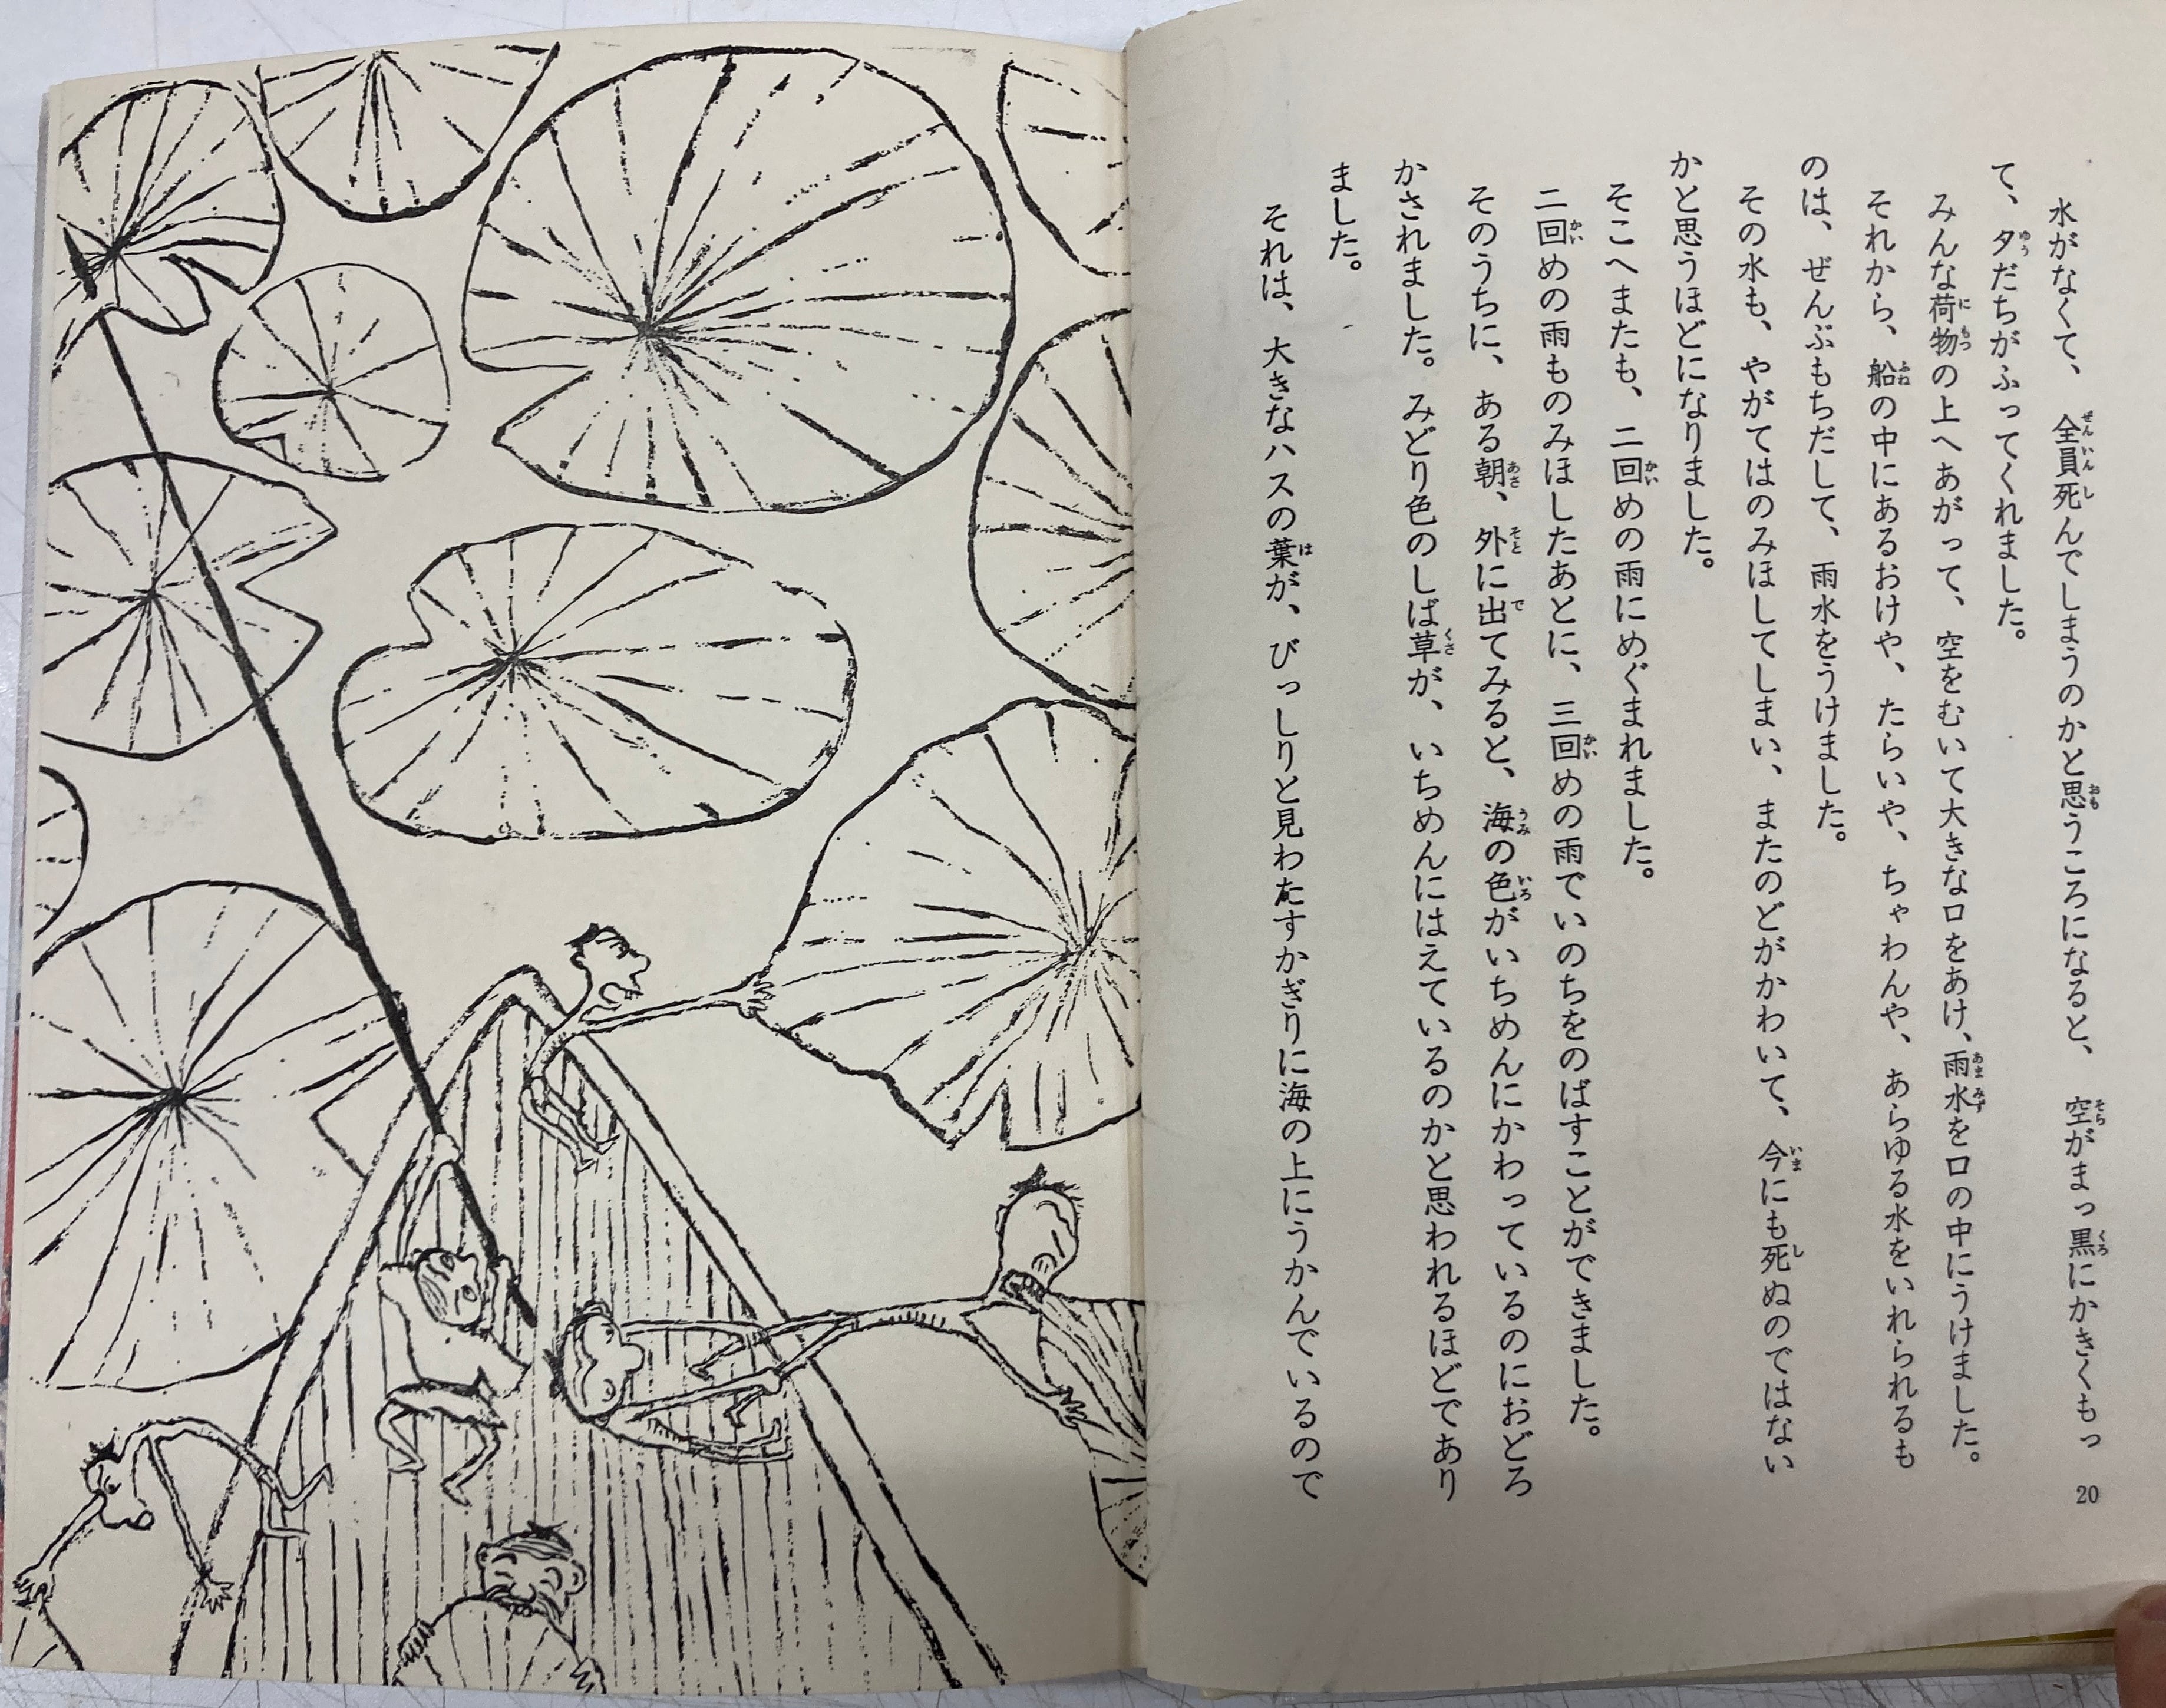 水がなくて、全員死んでしまうのかと思うころになると、空がまっ黒にかきくもっ
て、夕だちがふってくれました。
みんな荷物の上へあがって、空をむいて大きな口をあけ、雨水を口の中にうけました。
それから、船の中にあるおけや、たらいや、ちゃわんや、あらゆる水をいれられるも
のは、ぜんぶもちだして、雨水をうけました。
その水も、やがてはのみほしてしまい、またのどがかわいて、今にも死ぬのではない
かと思うほどになりました。
そこへまたも、二回めの雨にめぐまれました。
二回めの雨ものみほしたあとに、三回めの雨でいのちをのばすことができました。
そのうちに、ある朝、外に出てみると、海の色がいちめんにかわっているのにおどろ
かされました。みどり色のしば草が、いちめんにはえているのかと思われるほどであり
ました。
それは、大きなハスの葉が、びっしりと見わたすかぎりに海の上にうかんでいるので
20